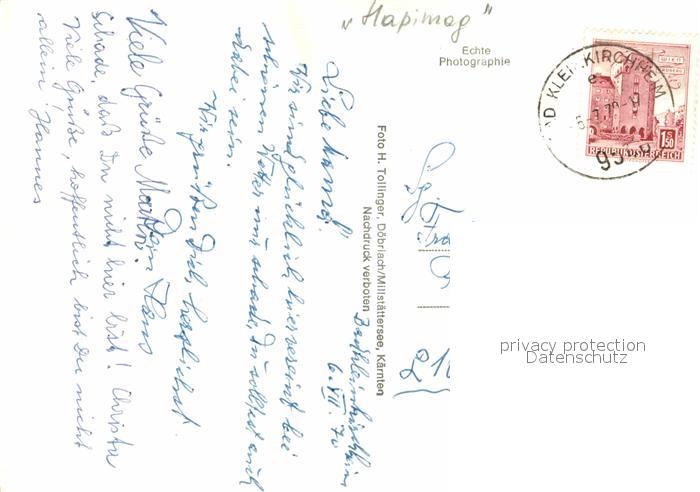 „Hapimag"
Echte
Photographie
BAD KLEINKIRCHHEIM
REPUBLIK ÖSTERREICH
1.50
Foto H. Tollinger, Döbriach/Millstättersee, Kärnten
Nachdruck verboten
Bad Kleinkirchheim
6. VII. 70
Wir sind glücklich hier vereint bei
schönem Wetter nur schade, Du solltest auch
dabei sein.
Wir grüßen Dich herzlichst
Dein Hans
Viele Grüße Martin.
Schade, daß Du nicht hier bist! Christa
Viele Grüße, hoffentlich bist Du nicht
allein! Hannes
privacy protection
Datenschutz